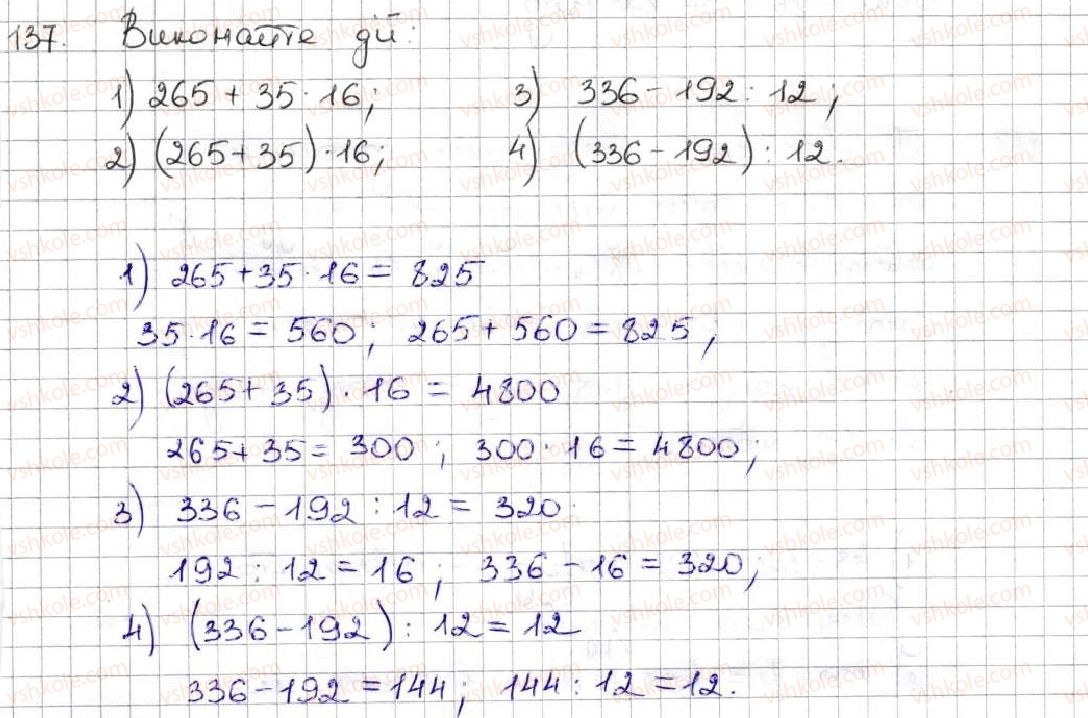 137. Виконайте дії:
1) 265 + 35 · 16; 3) 336 - 192 : 12;
2) (265 + 35) · 16; 4) (336 - 192) : 12.
1) 265 + 35 · 16 = 825
35 · 16 = 560; 265 + 560 = 825;
2) (265 + 35) · 16 = 4800
265 + 35 = 300; 300 · 16 = 4800;
3) 336 - 192 : 12 = 320.
192 : 12 = 16; 336 - 16 = 320;
4) (336 - 192) : 12 = 12
336 - 192 = 144; 144 : 12 = 12.